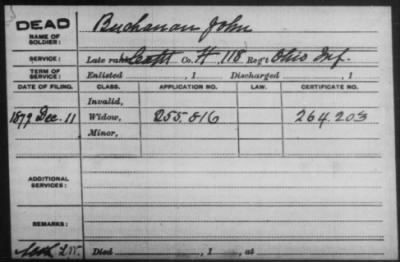 DEAD
NAME OF SOLDIER:
Buchanan John
SERVICE:
Late rank Capt Co. H 118 Reg't Ohio Inf.
TERM OF SERVICE:
Enlisted , 1 Discharged , 1
DATE OF FILING. CLASS. APPLICATION NO. LAW. CERTIFICATE NO.
Invalid,
1879 Dec. 11 Widow, 255.816 264.203
Minor,
ADDITIONAL SERVICES:
REMARKS:
Died , 1 , at